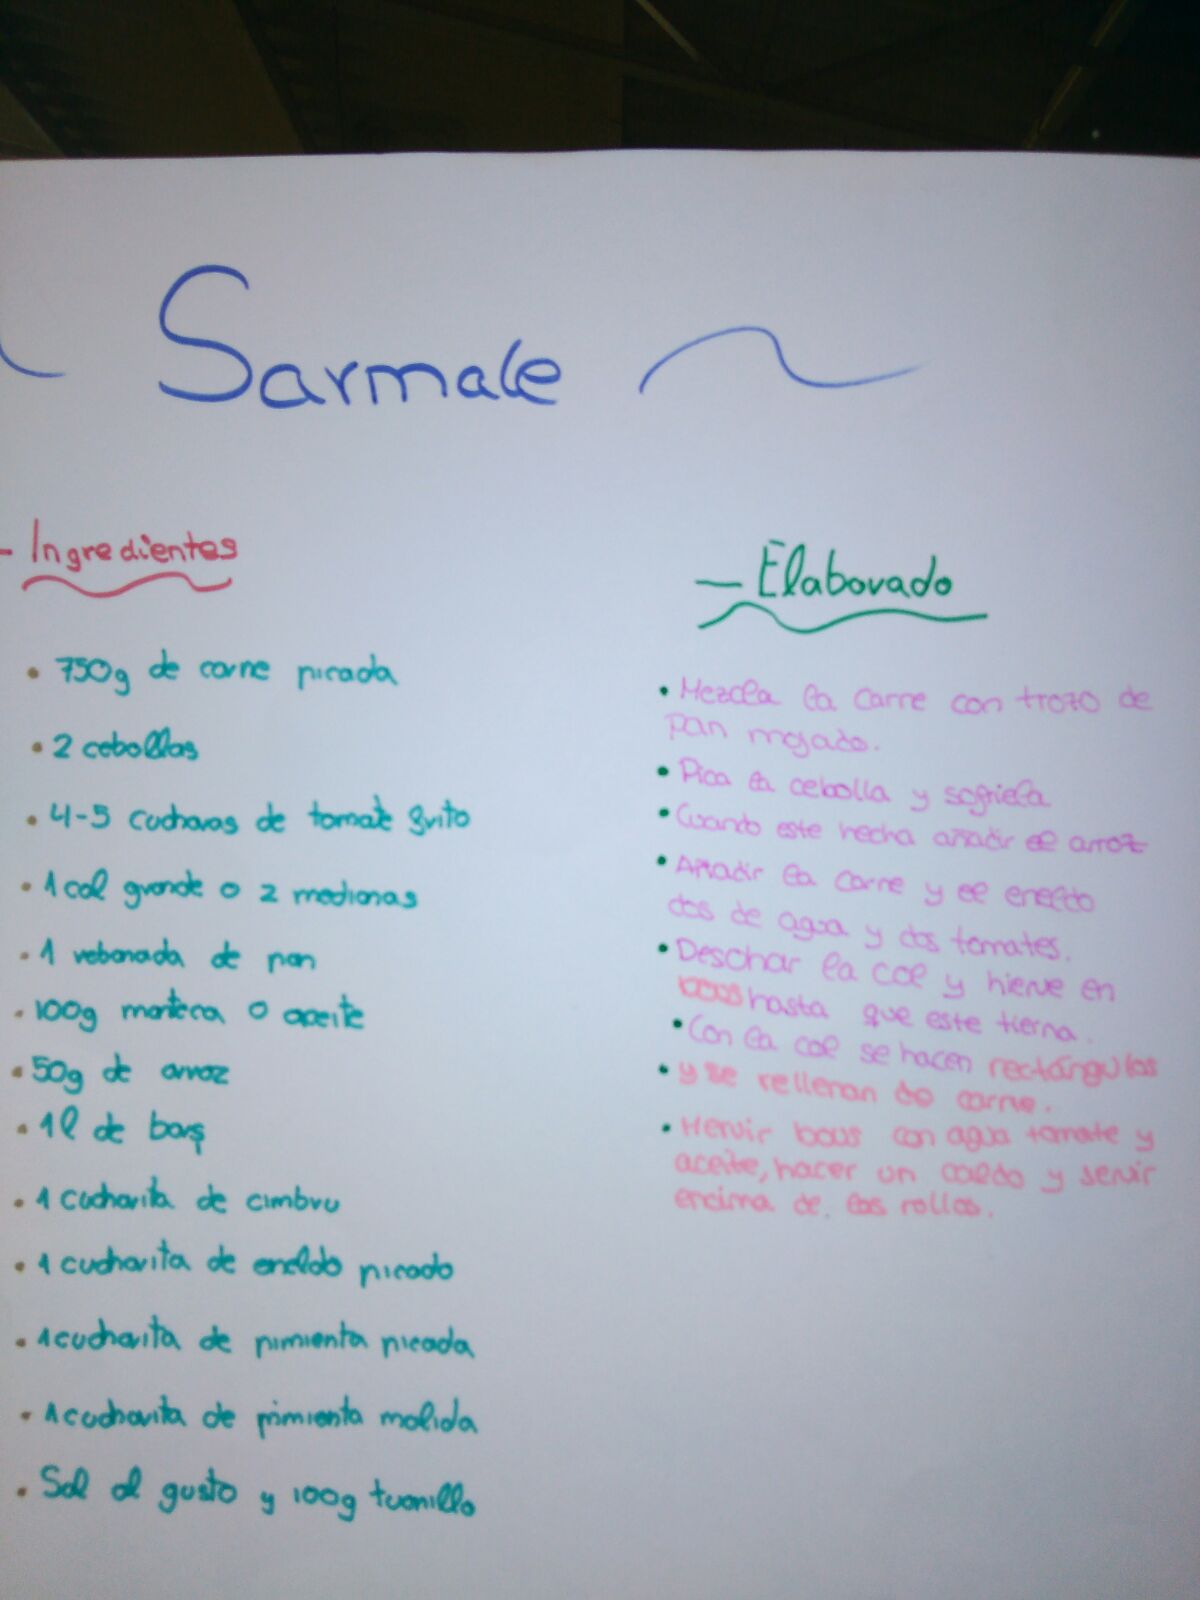 Sarmale
- Ingredientes
• 750g de carne picada
• 2 cebollas
• 4-5 cucharas de tomate frito
• 1 col grande o 2 medianas
• 1 rebanada de pan
• 100g manteca o aceite
• 50g de arroz
• 1l de borş
• 1 cucharita de cimbru
• 1 cucharita de eneldo picado
• 1 cucharita de pimienta picada
• 1 cucharita de pimienta molida
• Sal al gusto y 100g tuanillo
- Elaborado
• Mezcla la carne con trozo de
pan mojado.
• Pica la cebolla y sofriela
• Cuando este hecha añadir el arroz
• Añadir la carne y el eneldo
dos de agua y dos tomates.
• Deschar la col y hierve en
bous hasta que este tierna.
• Con la col se hacen rectángulos
• y se rellenan de carne.
• Hervir bous con agua tomate y
aceite, hacer un caldo y servir
encima de los rollos.